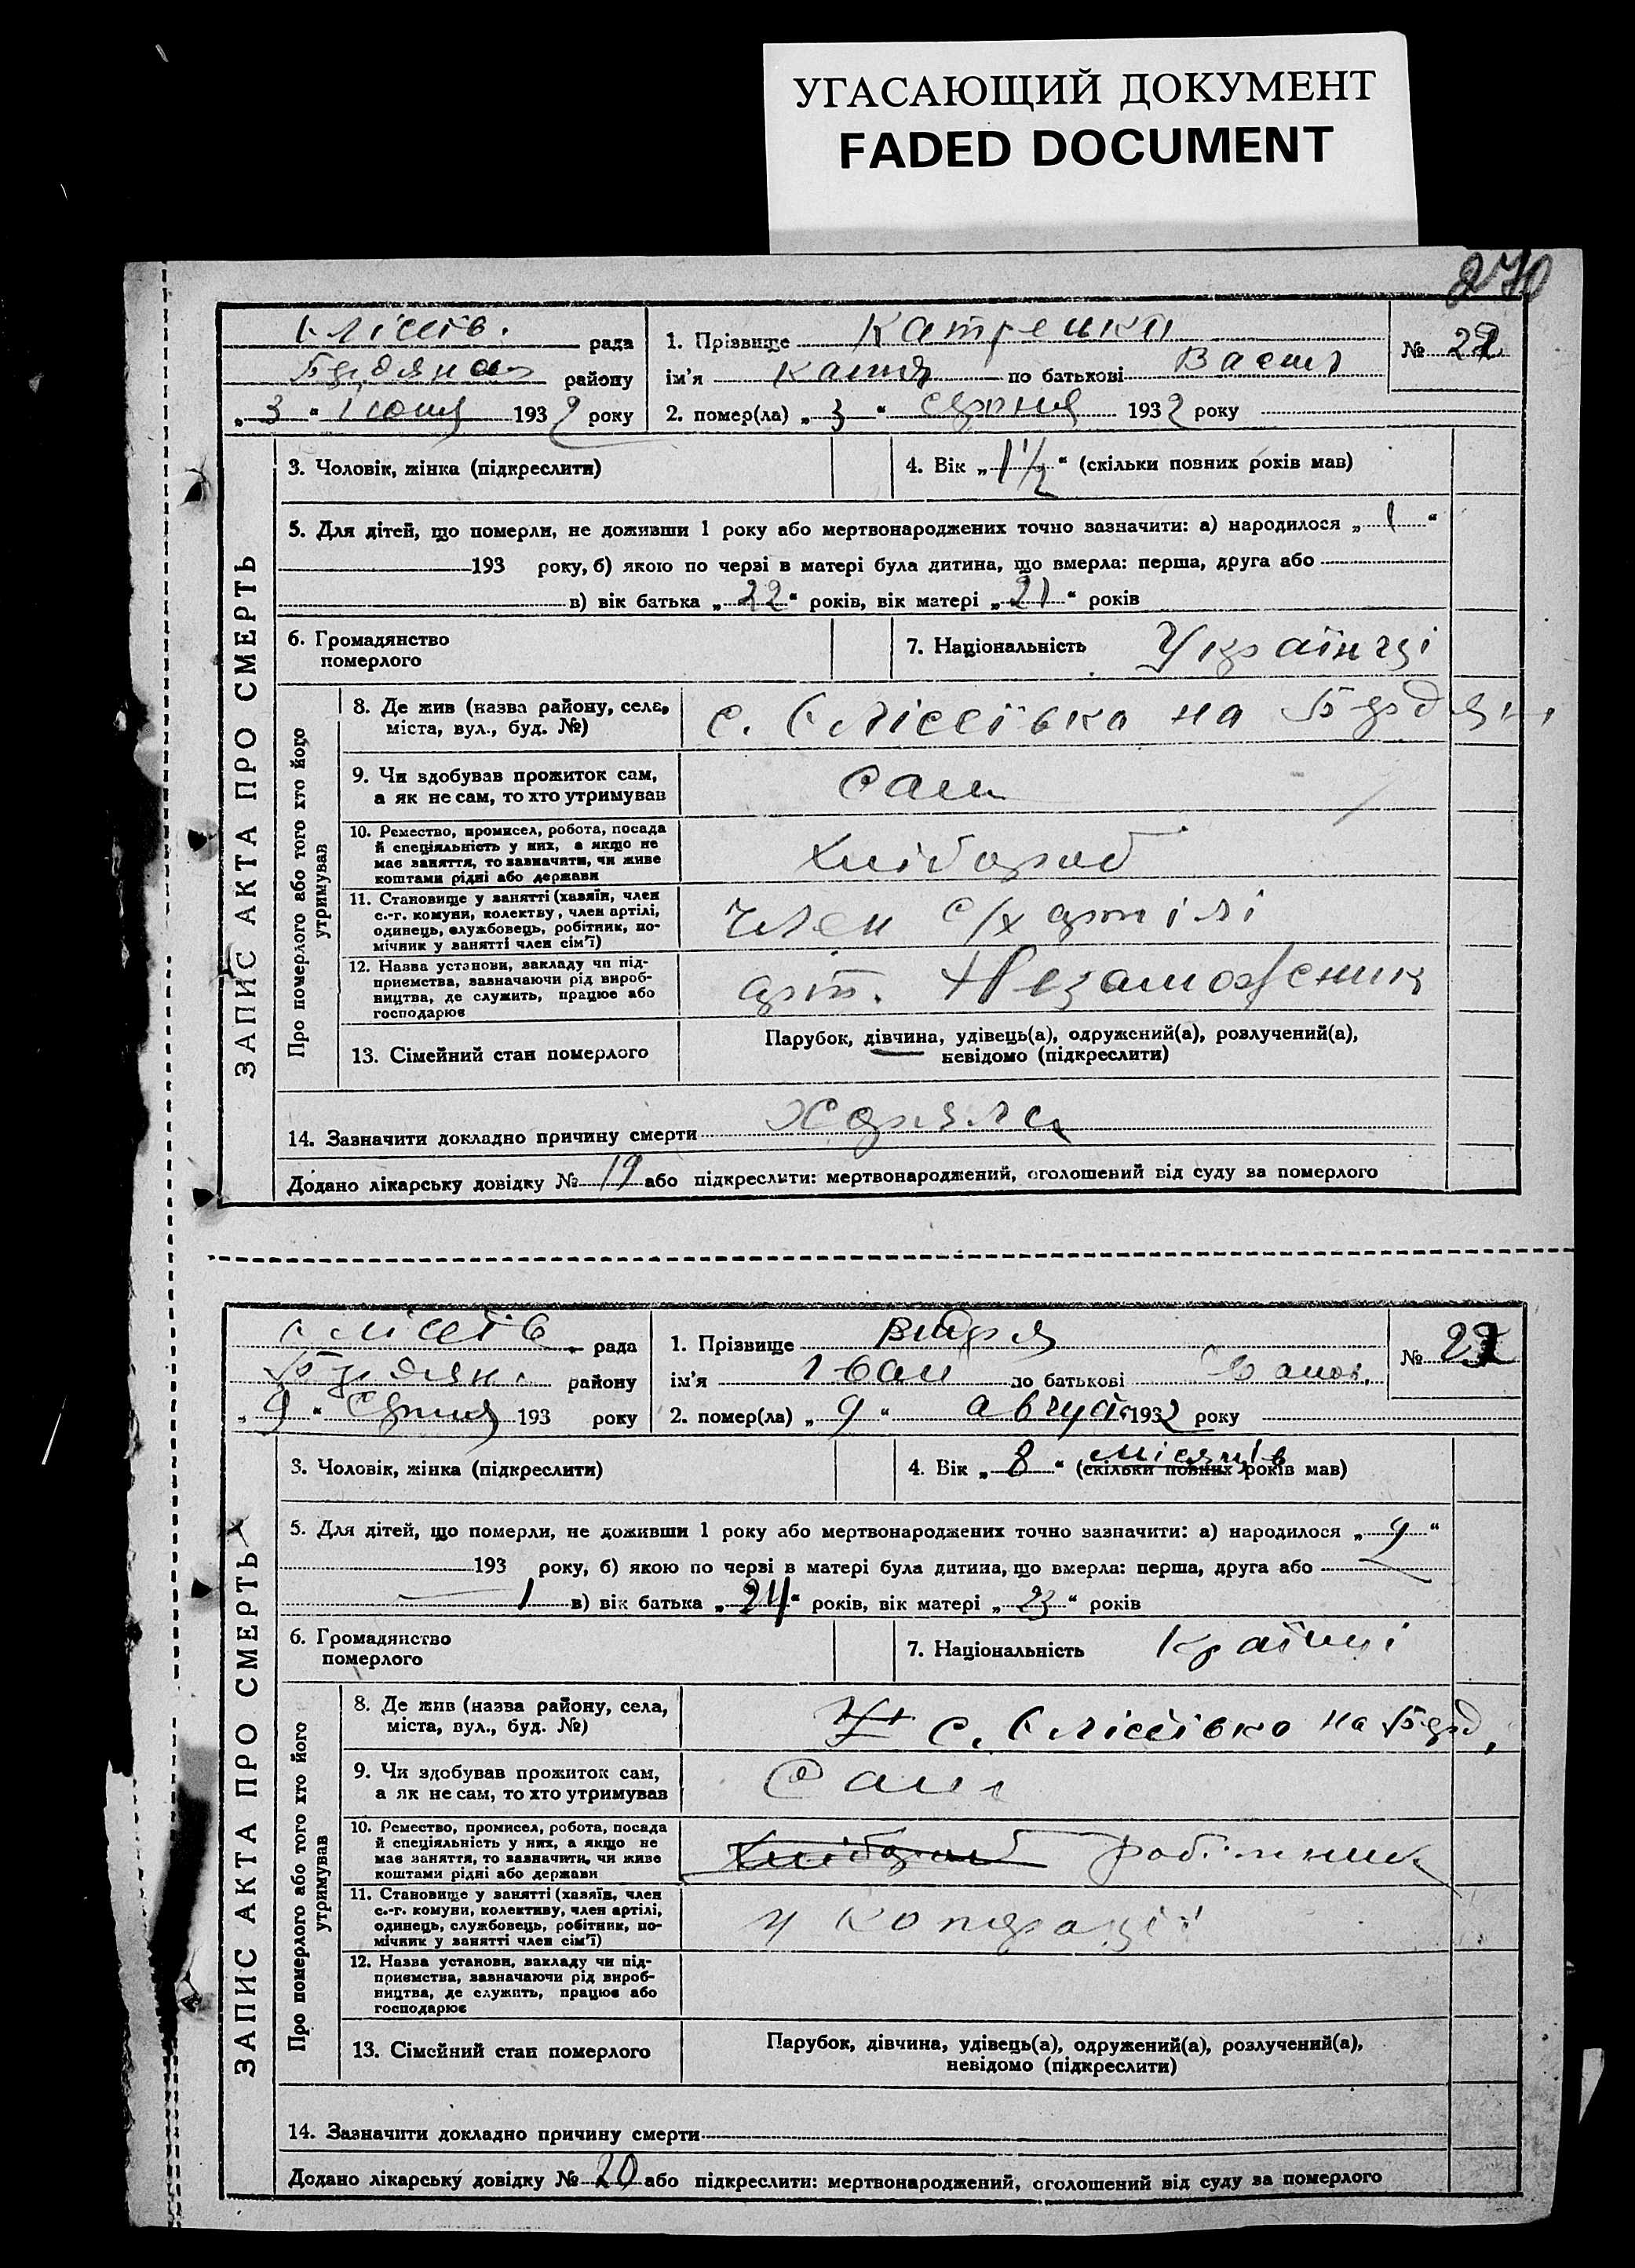 УГАСАЮЩИЙ ДОКУМЕНТ
FADED DOCUMENT
270
рада
району
„ 3 “ 1932 року
1. Прізвище Катренко
ім'я по батькові Васил
2. помер(ла) „ 3 “ серпня 1932 року
№
ЗАПИС АКТА ПРО СМЕРТЬ
3. Чоловік, жінка (підкреслити)
4. Вік „ 1 1/2 “ (скільки повних років мав)
5. Для дітей, що померли, не доживши 1 року або мертвонароджених точно зазначити: а) народилося „ 1 “
193 року, б) якою по черзі в матері була дитина, що вмерла: перша, друга або
в) вік батька „ 22 “ років, вік матері „ 21 “ років
6. Громадянство
померлого
7. Національність Українці
Про померлого або того хто його
утримував
8. Де жив (назва району, села,
міста, вул., буд. №)
с. Єлісеївка на Бердян
9. Чи здобував прожиток сам,
а як не сам, то хто утримував
сам
10. Ремество, промисел, робота, посада
й спеціяльність у них, а якщо не
має заняття, то зазначити, чи живе
коштами рідні або держави
хлібороб
11. Становище у занятті (хазяїн, член
с.-г. комуни, колектву, член артілі,
одинець, службовець, робітник, по-
мічник у занятті член сім'ї)
член с/х артілі
12. Назва установи, закладу чи під-
приємства, зазначаючи рід вироб-
ництва, де служить, працює або
господарює
арт. Незаможник
13. Сімейний стан померлого
Парубок, дівчина, удівець(а), одружений(а), розлучений(а),
невідомо (підкреслити)
14. Зазначити докладно причину смерти
Додано лікарську довідку № 19 або підкреслити: мертвонароджений, оголошений від суду за померлого
рада
району
„ 9 “ Серпня 193 року
1. Прізвище
ім'я Іван по батькові
2. помер(ла) „ 9 “ август 1932 року
№
ЗАПИС АКТА ПРО СМЕРТЬ
3. Чоловік, жінка (підкреслити)
4. Вік „ 8 “ місяців (скільки повних років мав)
5. Для дітей, що померли, не доживши 1 року або мертвонароджених точно зазначити: а) народилося „ “
193 року, б) якою по черзі в матері була дитина, що вмерла: перша, друга або
1 в) вік батька „ 24 “ років, вік матері „ 23 “ років
6. Громадянство
померлого
7. Національність
Про померлого або того хто його
утримував
8. Де жив (назва району, села,
міста, вул., буд. №)
с. Єлісеївка на Берд,
9. Чи здобував прожиток сам,
а як не сам, то хто утримував
Сам
10. Ремество, промисел, робота, посада
й спеціяльність у них, а якщо не
має заняття, то зазначити, чи живе
коштами рідні або держави
хлібороб робітник
11. Становище у занятті (хазяїн, член
с.-г. комуни, колективу, член артілі,
одинець, службовець, робітник, по-
мічник у занятті член сім'ї)
у копорації
12. Назва установи, закладу чи під-
приємства, зазначаючи рід вироб-
ництва, де служить, працює або
господарює
13. Сімейний стан померлого
Парубок, дівчина, удівець(а), одружений(а), розлучений(а),
невідомо (підкреслити)
14. Зазначити докладно причину смерти
Додано лікарську довідку № 20 або підкреслити: мертвонароджений, оголошений від суду за померлого